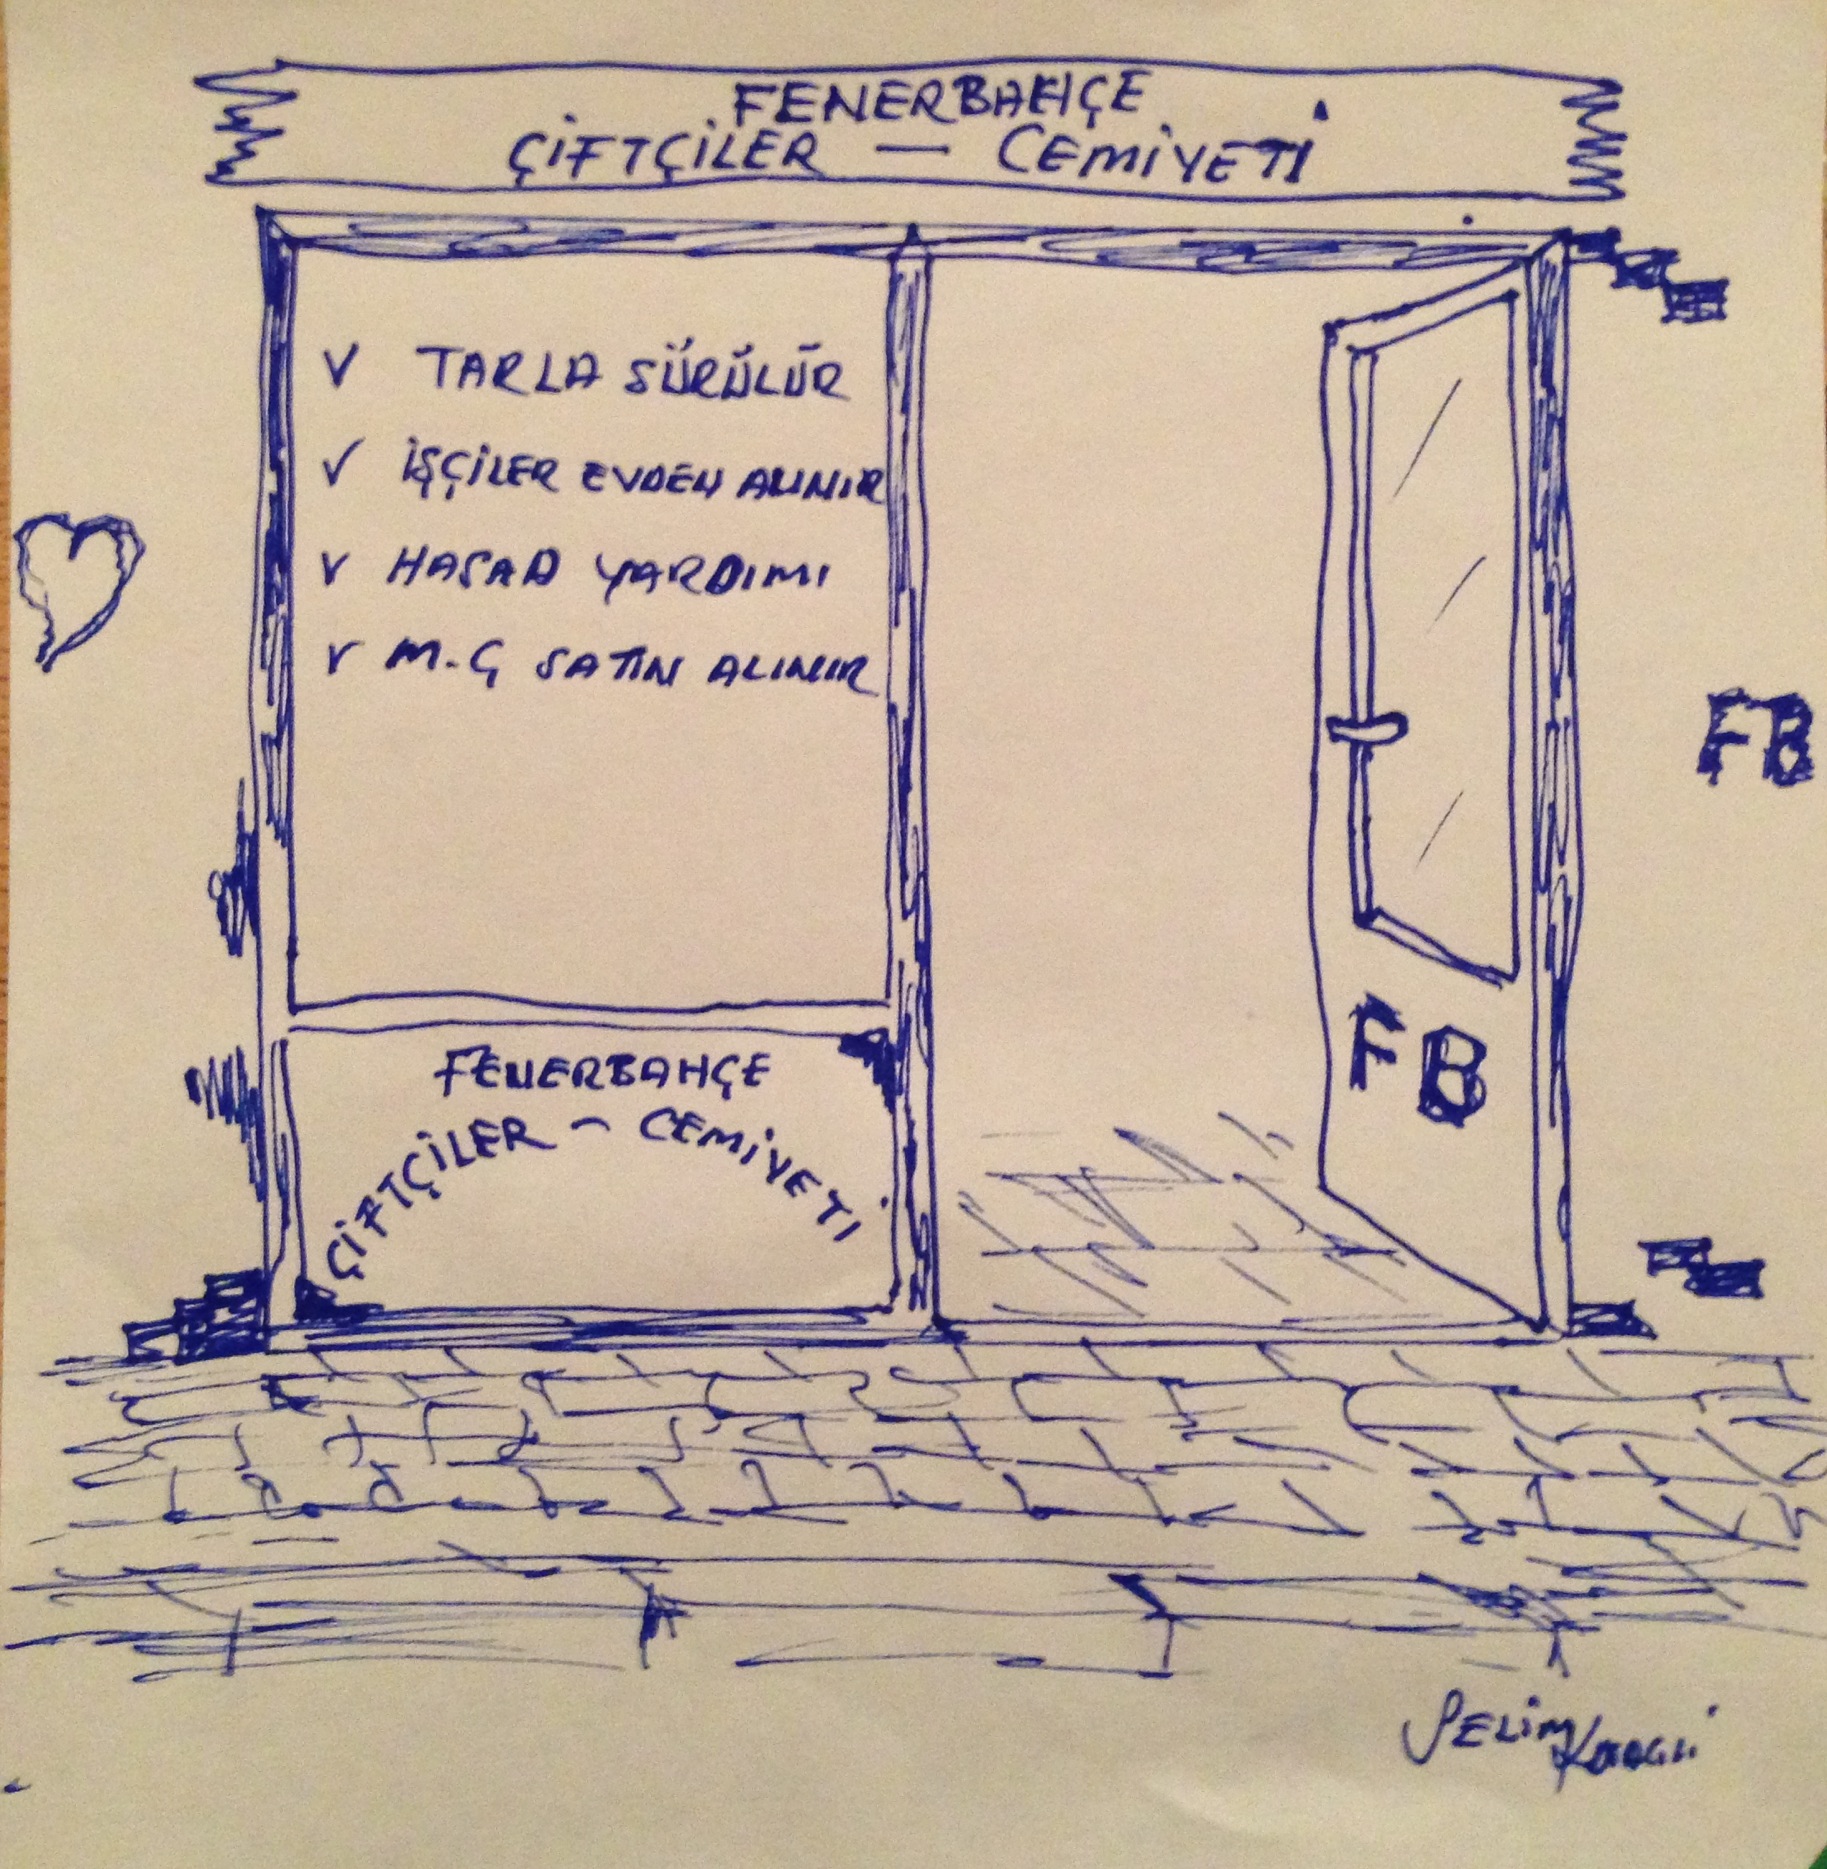 FENERBAHÇE
ÇİFTÇİLER — CEMİYETİ
V TARLA SÜRÜLÜR
V İŞÇİLER EVDEN ALINIR
V HASAD YARDIMI
V M.Ç SATIN ALINIR
FB
FB
FENERBAHÇE
ÇİFTÇİLER - CEMİYETI
SELİM